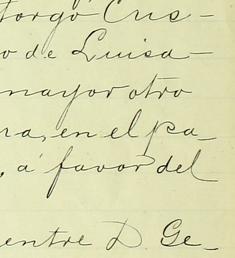 torgó Cris-
o de Luisa-
mayor otro
ra, en el pa
, á favor del
entre D Ge-